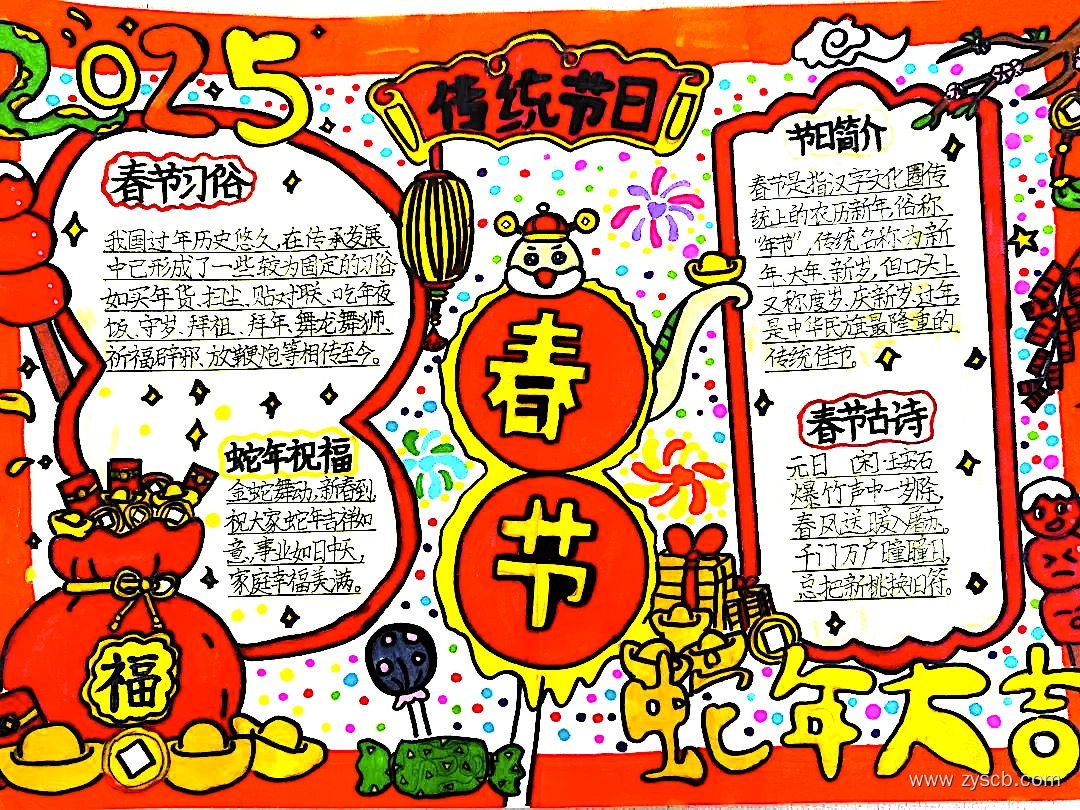 2025
传统节日
春节习俗
我国过年历史悠久,在传承发展
中已形成了一些较为固定的习俗
如买年货、扫尘、贴对联、吃年夜
饭、守岁、拜祖、拜年、舞龙舞狮、
祈福辟邪、放鞭炮等相传至今。
蛇年祝福
金蛇舞动,新春到,
祝大家蛇年吉祥如
意、事业如日中天,
家庭幸福美满。
福
春
节
节日简介
春节是指汉字文化圈传
统上的农历新年,俗称
“年节”,传统名称为新
年、大年、新岁,但口头上
又称度岁、庆新岁、过年,
是中华民族最隆重的
传统佳节。
春节古诗
元日 闲·王安石
爆竹声中一岁除,
春风送暖入屠苏。
千门万户曈曈日,
总把新桃换旧符。
蛇年大吉
www.zyscb.com